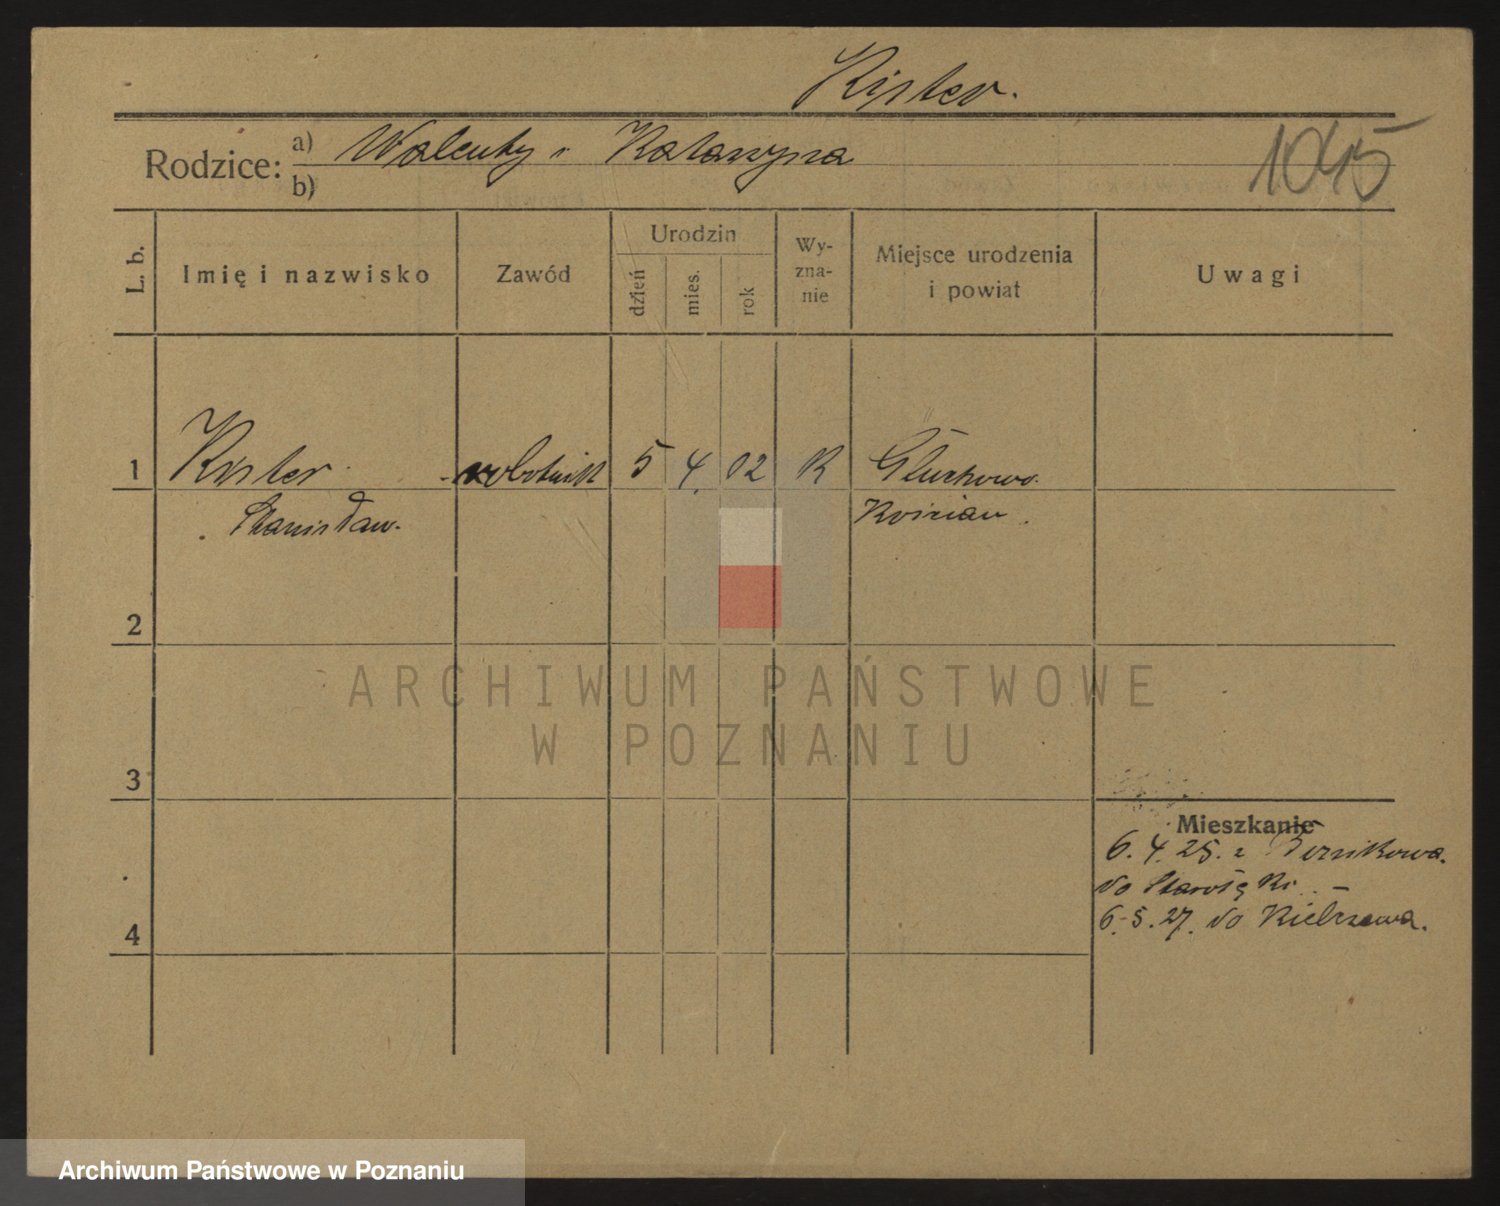 Kister.
Rodzice: a) Walenty i Katarzyna
b)
1045
L. b. Imię i nazwisko Zawód Urodzin dzień mies. rok Wyznanie Miejsce urodzenia i powiat Uwagi
1 Kister robotnik 5 4. 02 K Głuchowo
Stanisław. Kościan
2
ARCHIWUM PAŃSTWOWE
W POZNANIU
3
Mieszkanie
6. 4. 25. z
do Starołęki. –
4
6.-5. 27. do
Archiwum Państwowe w Poznaniu